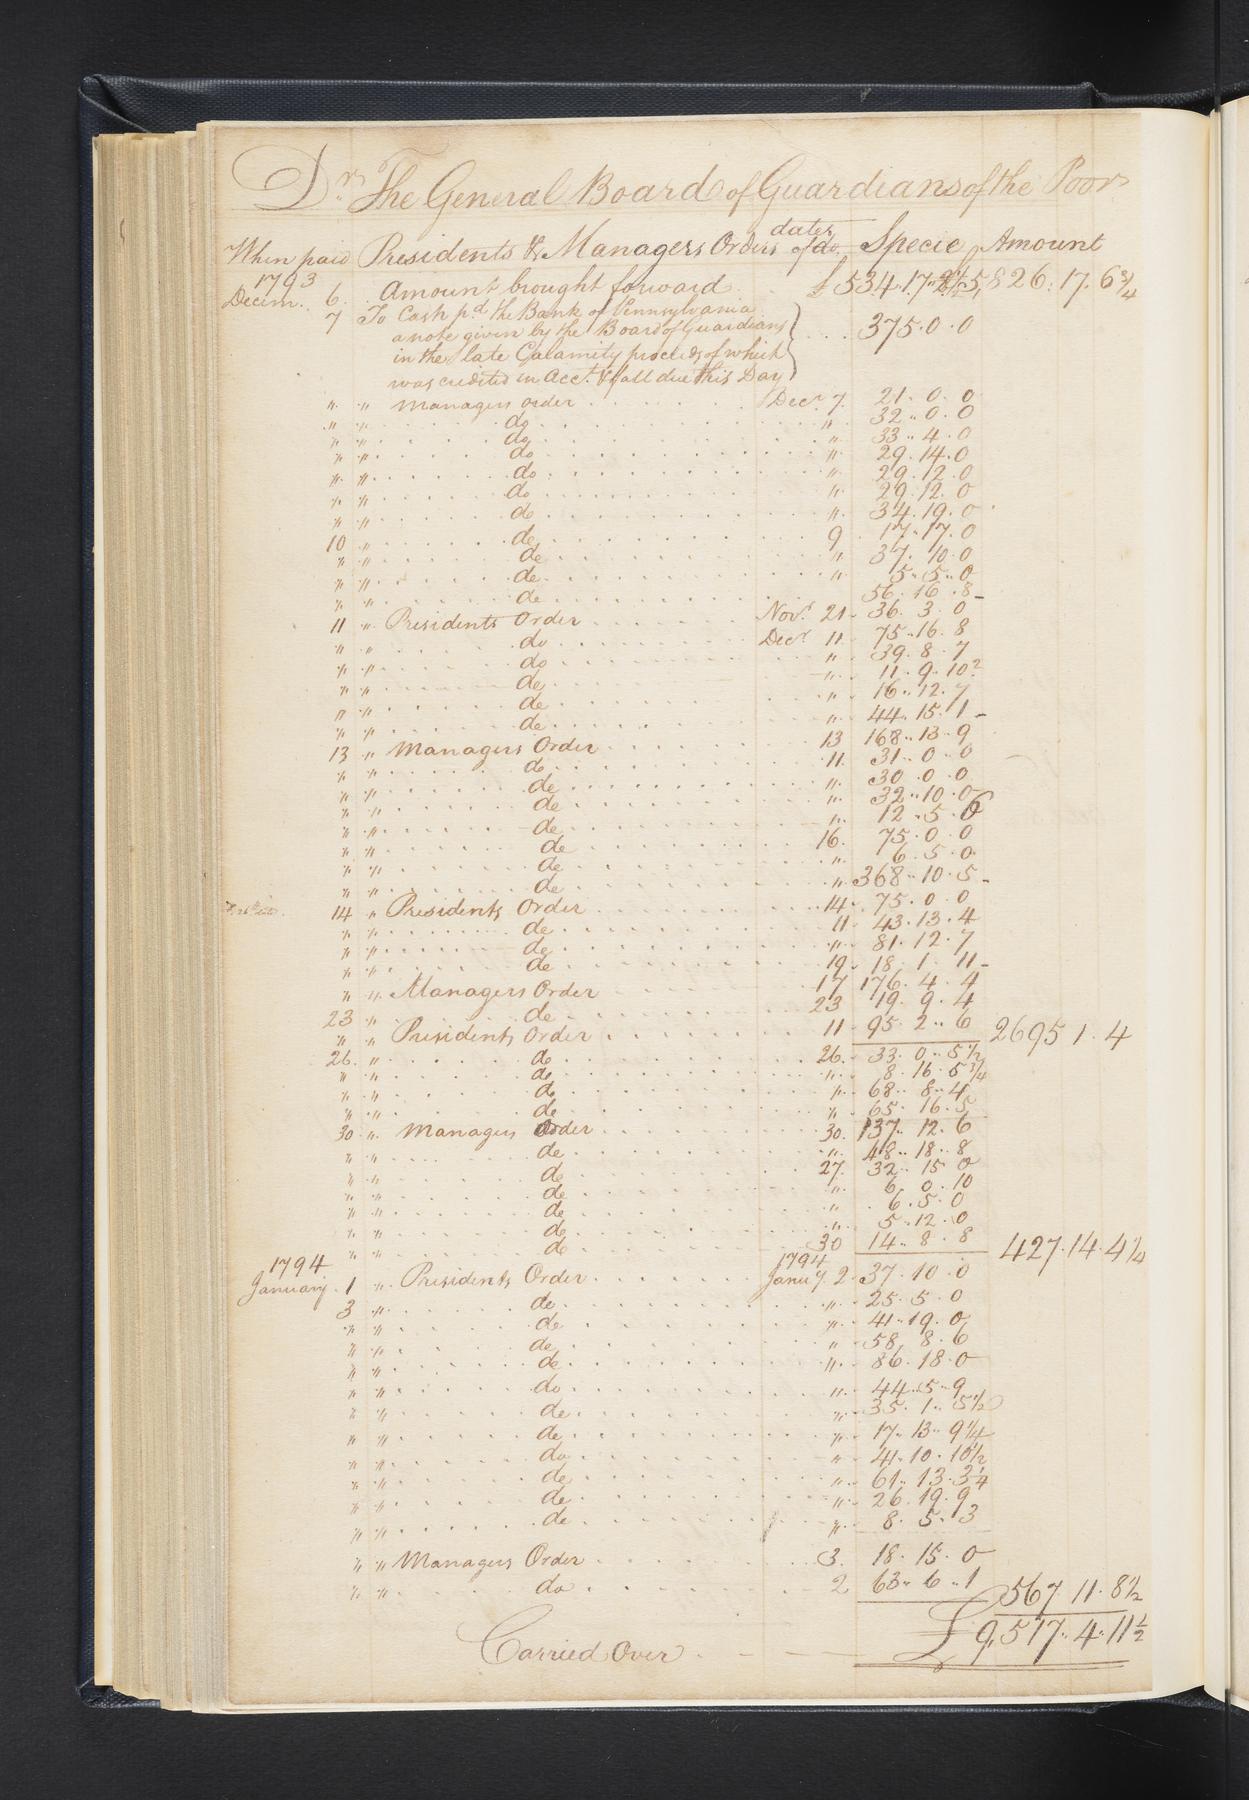 Dr. The General Board of Guardians of the Poor
When paid Presidents & Managers Orders dates of do. Specie Amount
1793
Decem. 6. Amount brought forward £ 534.17. 5,826.17.6 3/4
7 To Cash pd. the Bank of Pennsylvania
a note given by the Board of Guardians
in the late Calamity proceeds of which . . . 375.0.0
was credited in Acct. & fall due this Day
" " Managers order Decr. 7. 21.0.0
" " do " 32.0.0
" " do " 33.4.0
" " do " 29.14.0
" " do " 29.12.0
" " do " 29.12.0
" " do " 34.19.0
10 " do 9 17.17.0
" " do " 37.10.0
" " do " 5.5.0
" " do 56.16.8
11 " Presidents Order Novr. 21 36.3.0
" " do Decr. 11 75.16.8
" " do " 39.8.7
" " do " 11.9.10
" " do " 16.12.7
" " do " 44.15.1
13 " Managers Order 13 168.13.9
" " do 11 31.0.0
" " do " 30.0.0
" " do " 32.10.0
" " do " 12.5.6
" " do 16. 75.0.0
" " do " 6.5.0
" " do " 368.10.5
14 " Presidents Order 14 75.0.0
" " do 11 43.13.4
" " do " 81.12.7
" " do 19 18.1.11
" " Managers Order 17 176.4.4
23 " do 23 19.9.4
" " Presidents Order 11 95.2.6 2695.1.4
26. " do 26. 33.0.5 1/2
" " do " 8.16.5 3/4
" " do " 68.8.4
" " do " 65.16.5
30 " Managers Order 30. 137.12.6
" " do " 48.18.8
" " do 27. 32.15.0
" " do " 6.0.10
" " do " 6.5.0
" " do " 5.12.0
" " do 30 14.8.8 427.14.4 1/4
1794 1794
January 1 " Presidents Order Janu'y. 2 37.10.0
3 " do " 25.5.0
" " do " 41.19.0
" " do " 58.8.6
" " do " 86.18.0
" " do " 44.5.9
" " do " 35.1.5 1/2
" " do " 17.13.9 1/4
" " do " 41.10.10 1/2
" " do " 61.13.3 1/4
" " do " 26.19.9
" " do " 8.5.3
" " Managers Order 3. 18.15.0
" " do 2 63.6.1 567.11.8 1/2
Carried Over £ 9,517.4.11 1/2